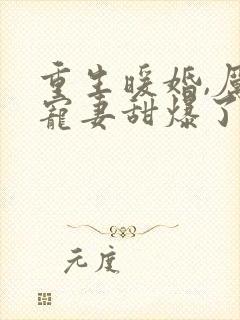 重生暖婚,厲
寵妻甜爆了
元度